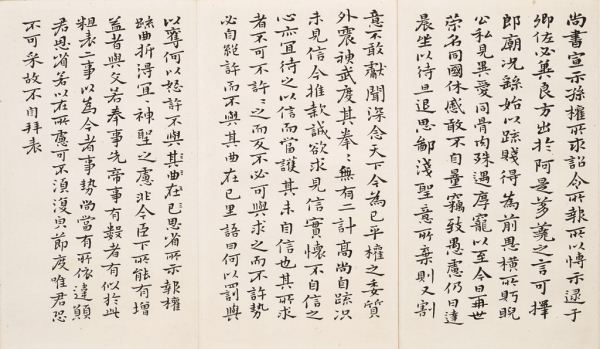 尚書宣示孫權所求詔令所報所以博示逮于
卿佐必冀良方出於阿是芻蕘之言可擇
郎廟況繇始以疏賤得為前恩橫所盱睨
公私見異愛同骨肉殊遇厚寵以至今日再世
榮名同國休慼敢不自量竊致愚慮仍日達
晨坐以待旦退思鄙淺聖意所棄則又割
意不敢獻聞深念天下今為已平權之委質
外震神武度其拳拳無有二計高尚自疏況
未見信今推款誠欲求見信實懷不自信之
心亦宜待之以信而當護其未自信也其所求
者不可不許許之而反不必可與求之而不許勢
必自絕許而不與其曲在己里語曰何以罰與
以奪何以怒許不與思省所示報權
疏曲折得宜宜神聖之慮非今臣下所能有增
益昔與文若奉事先帝事有數者有似於此
粗表二事以為今者事勢尚當有所依違願
君思省若以在所慮可不須復皃節度唯君恐
不可采故不自拜表